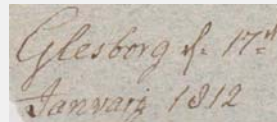 Glesborg d. 17de
Januarij 1812